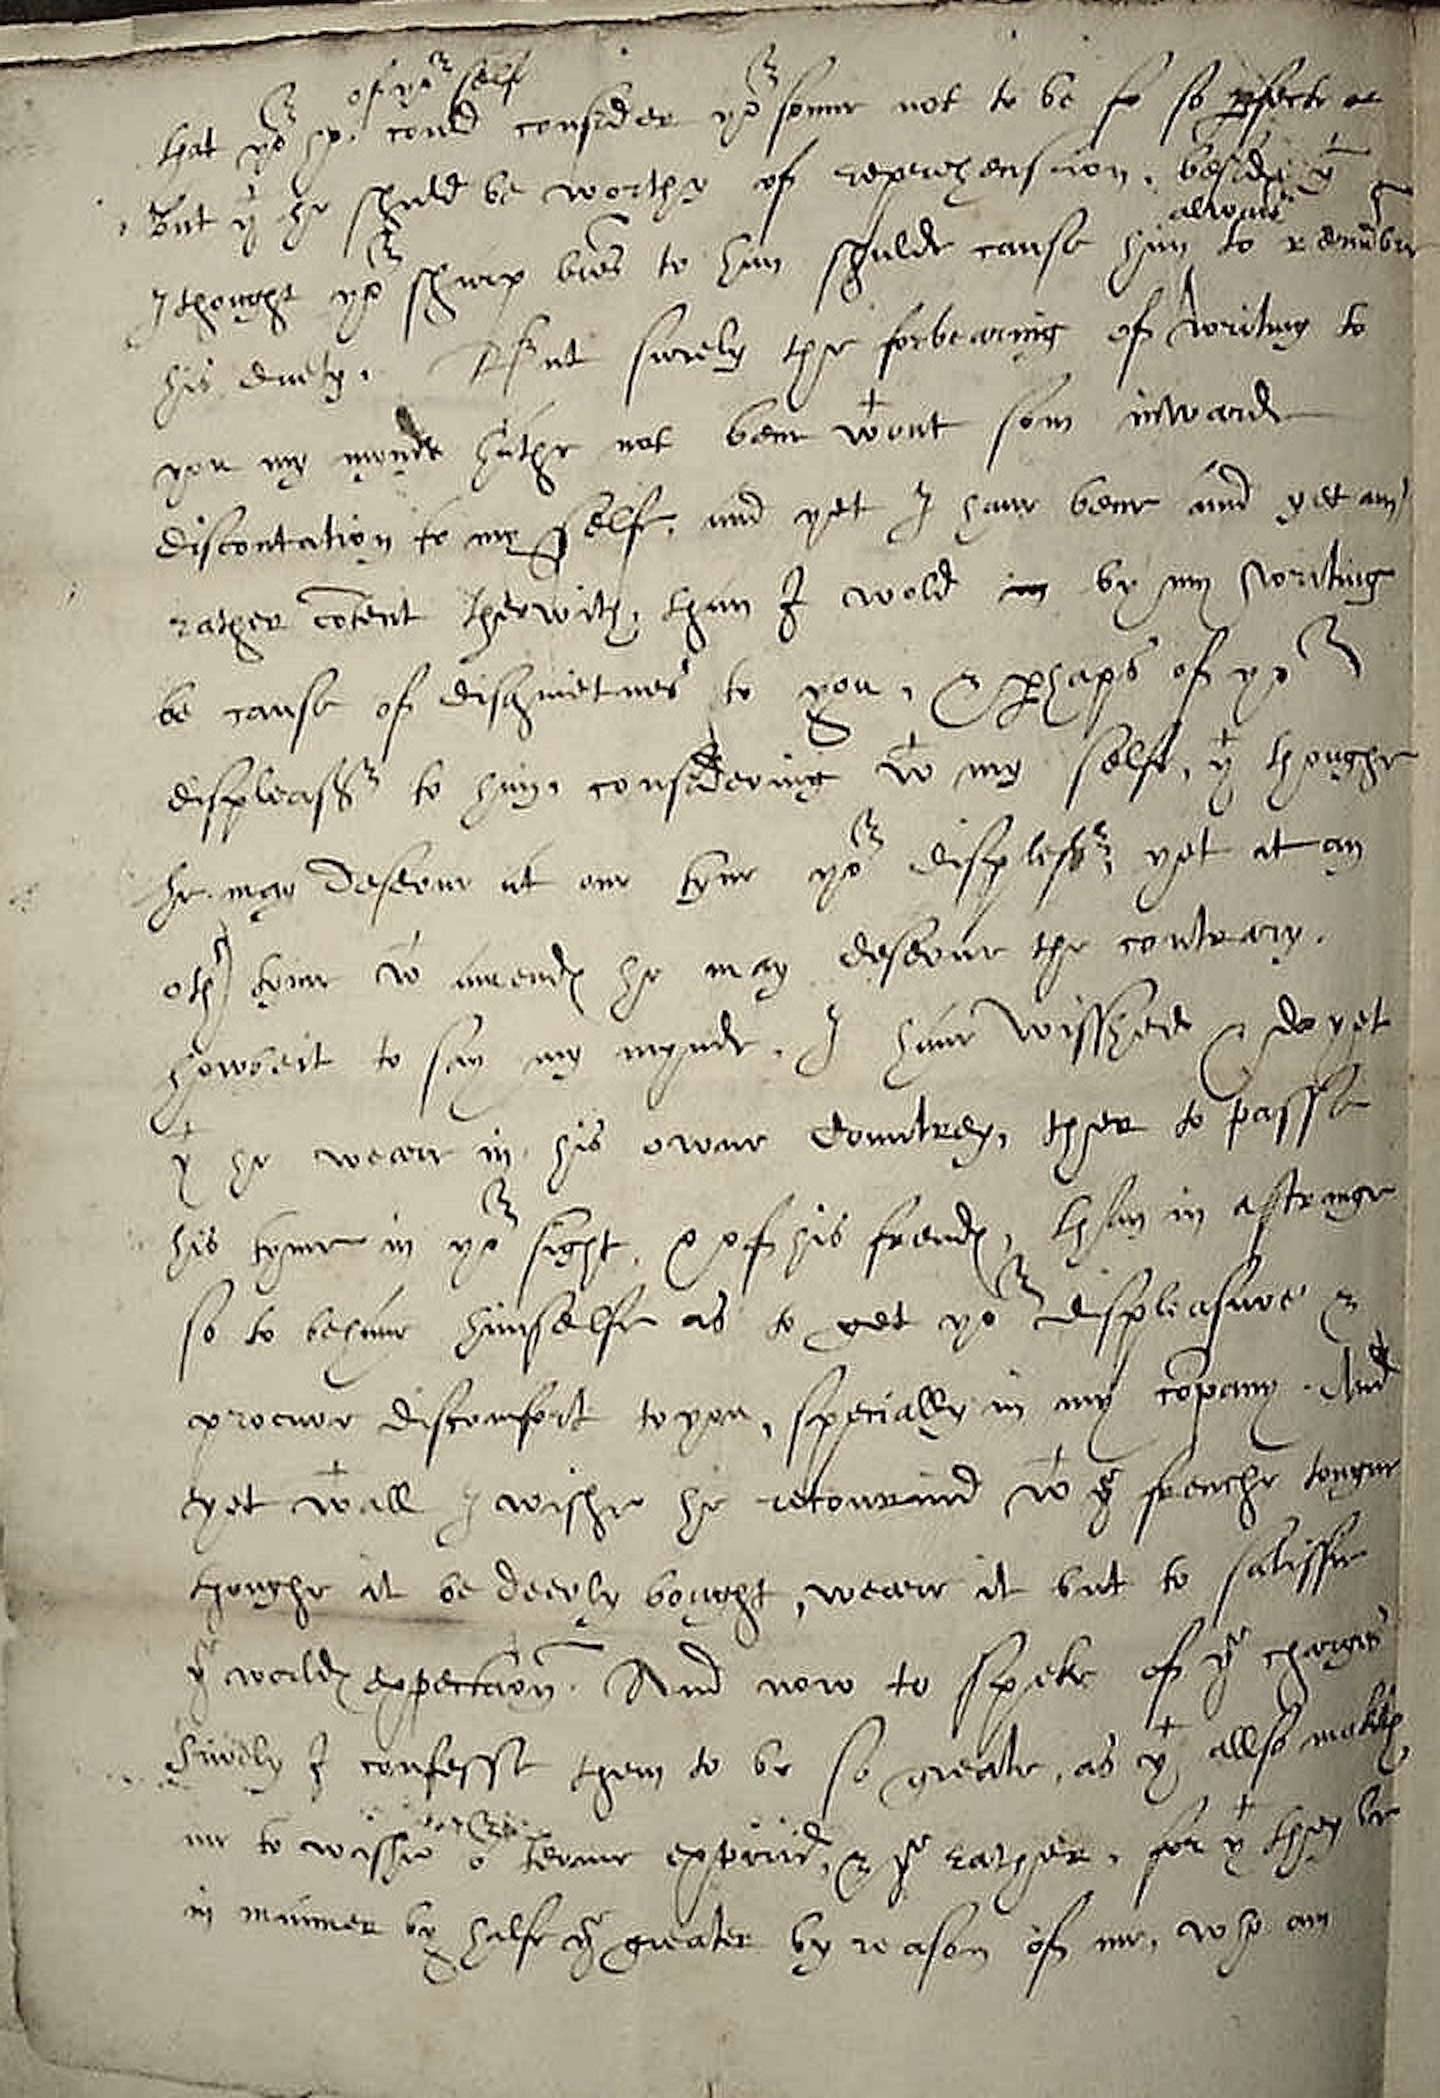 of yor self
that yor hp. could consider yor sonne not to be so so pfecte as
But yt he shuld be worthy of reprehension. besyde yt
allwais
I thought yor sharp lres to him shulde cause him to remēbre
his duety. But surely the forbearing of writing to
you my mynde hathe not bene wtout som inwarde
discontation to my self, and yet I have bene and yet am
rather cōtent therwith, than I wold by my writing
be cause of disquietnes to you, & phaps of yor
displeasr to him, considering wt my self, yt thoughe
he may deserve at one tyme yor displesr, yet at an
othr tyme wt amends he may deserve the contrary.
howbeit to say my mynde, I have wisshed & do yet
yt he wear in his owne Countrey, ther to passe
his tyme in yor sight, & of his frends, than in a strange
so to behave himselfe as to get yor displeasure &
procure discomfort to you, specially in my cōpany. And
yet wtall I wishe he retournid wt ye frenche tongue
thoughe it be deerly bought, wear it but to satisfie
ye worlds expectaciōn. And now to speke of ye charges
Surely I confesse them to be so greate, as yt allso makes
me to wishe or terme expirid, & ye rather, for yt they be
in manner by halfe ye greater by reason of me, who am